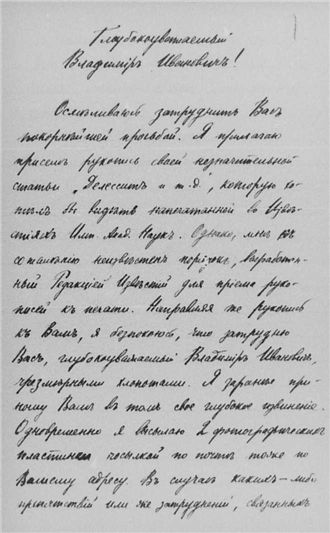 Глубокоуважаемый
Владимiръ Ивановичъ!
Осмѣливаюсь затруднить Васъ
покорнѣйшей просьбой. Я прилагаю
при семъ рукопись своей незначительной
статьи „Делесситъ и т.д.", которую хо-
тѣлъ бы видѣть напечатанной въ Извѣ-
стiяхъ Имп. Акад. Наукъ. Однако, мнѣ къ
сожалѣнiю неизвѣстенъ порядокъ, выработан-
ный Редакцiей Извѣстiй для прiема руко-
писей къ печати. Направляя же рукопись
къ Вамъ, я безпокоюсь, что затрудню
Васъ, глубокоуважаемый Владимiръ Ивановичъ,
чрезмѣрными хлопотами. Я заранѣе при-
ношу Вамъ въ томъ свое глубокое извиненiе.
Одновременно я высылаю 2 фотографическихъ
пластинки посылкой по почтѣ тоже по
Вашему адресу. Въ случаѣ какихъ-либо
препятствiй или же затрудненiй, связанныхъ